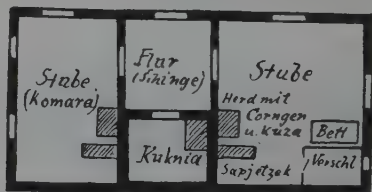 Stube
(Komara)
Flur
(Schinge)
Kuknia
Stube
Herd mit
Corngen
u. Kuza
Bett
Sapjetzek
Verschl